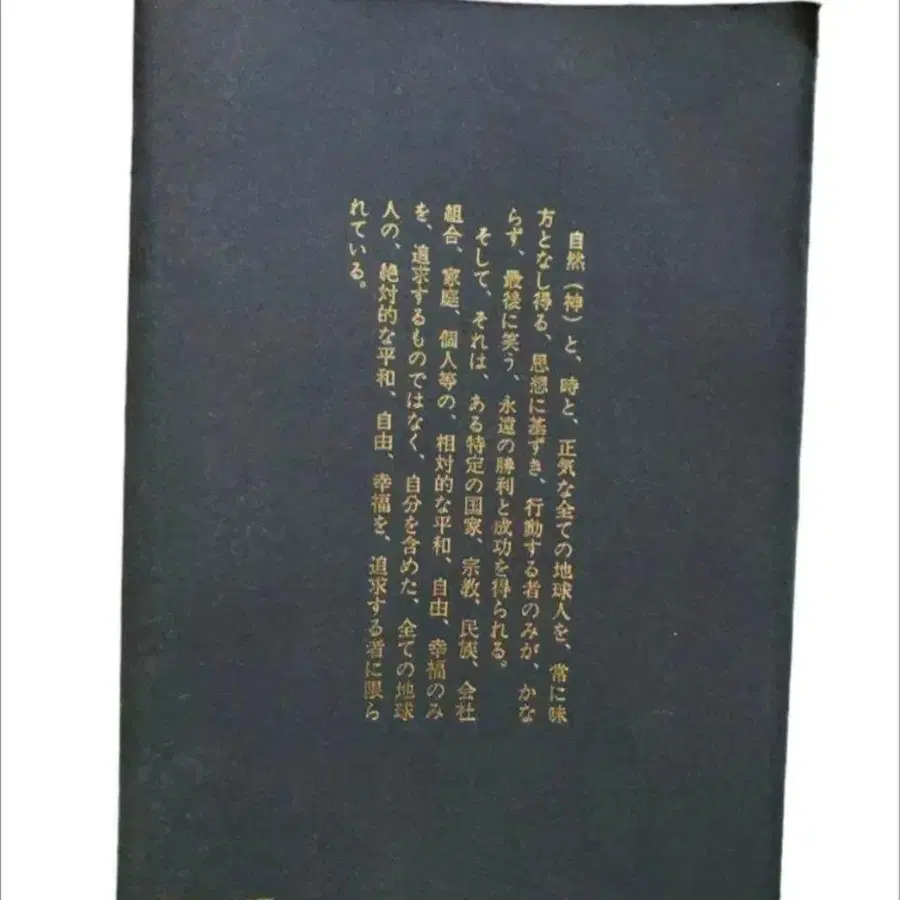 自然（神）と、時と、正気な全ての地球人を、常に味
方となし得る、思想に基ずき、行動する者のみが、かな
らず、最後に笑う、永遠の勝利と成功を得られる。
そして、それは、ある特定の国家、宗教、民族、会社
組合、家庭、個人等の、相対的な平和、自由、幸福のみ
を、追求するものではなく、自分を含めた、全ての地球
人の、絶対的な平和、自由、幸福を、追求する者に限ら
れている。